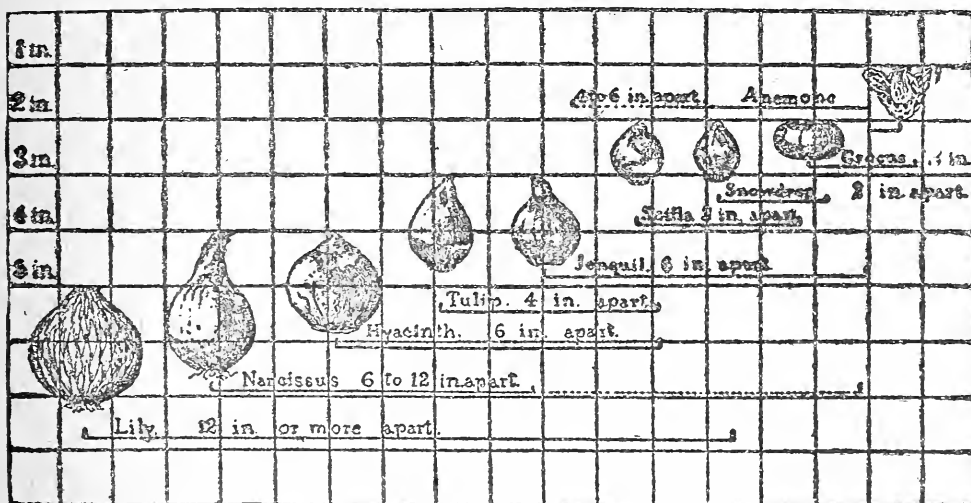 1 in.
2 in.
4 to 6 in. apart Anemone
3 in.
Crocus. in.
Snowdrop 2 in apart.
4 in.
Scilla 2 in. apart.
5 in.
Jonquil. 6 in. apart
Tulip. 4 in. apart.
Hyacinth. 6 in. apart.
Narcissus 6 to 12 in. apart.
Lily. 12 in. or more apart.